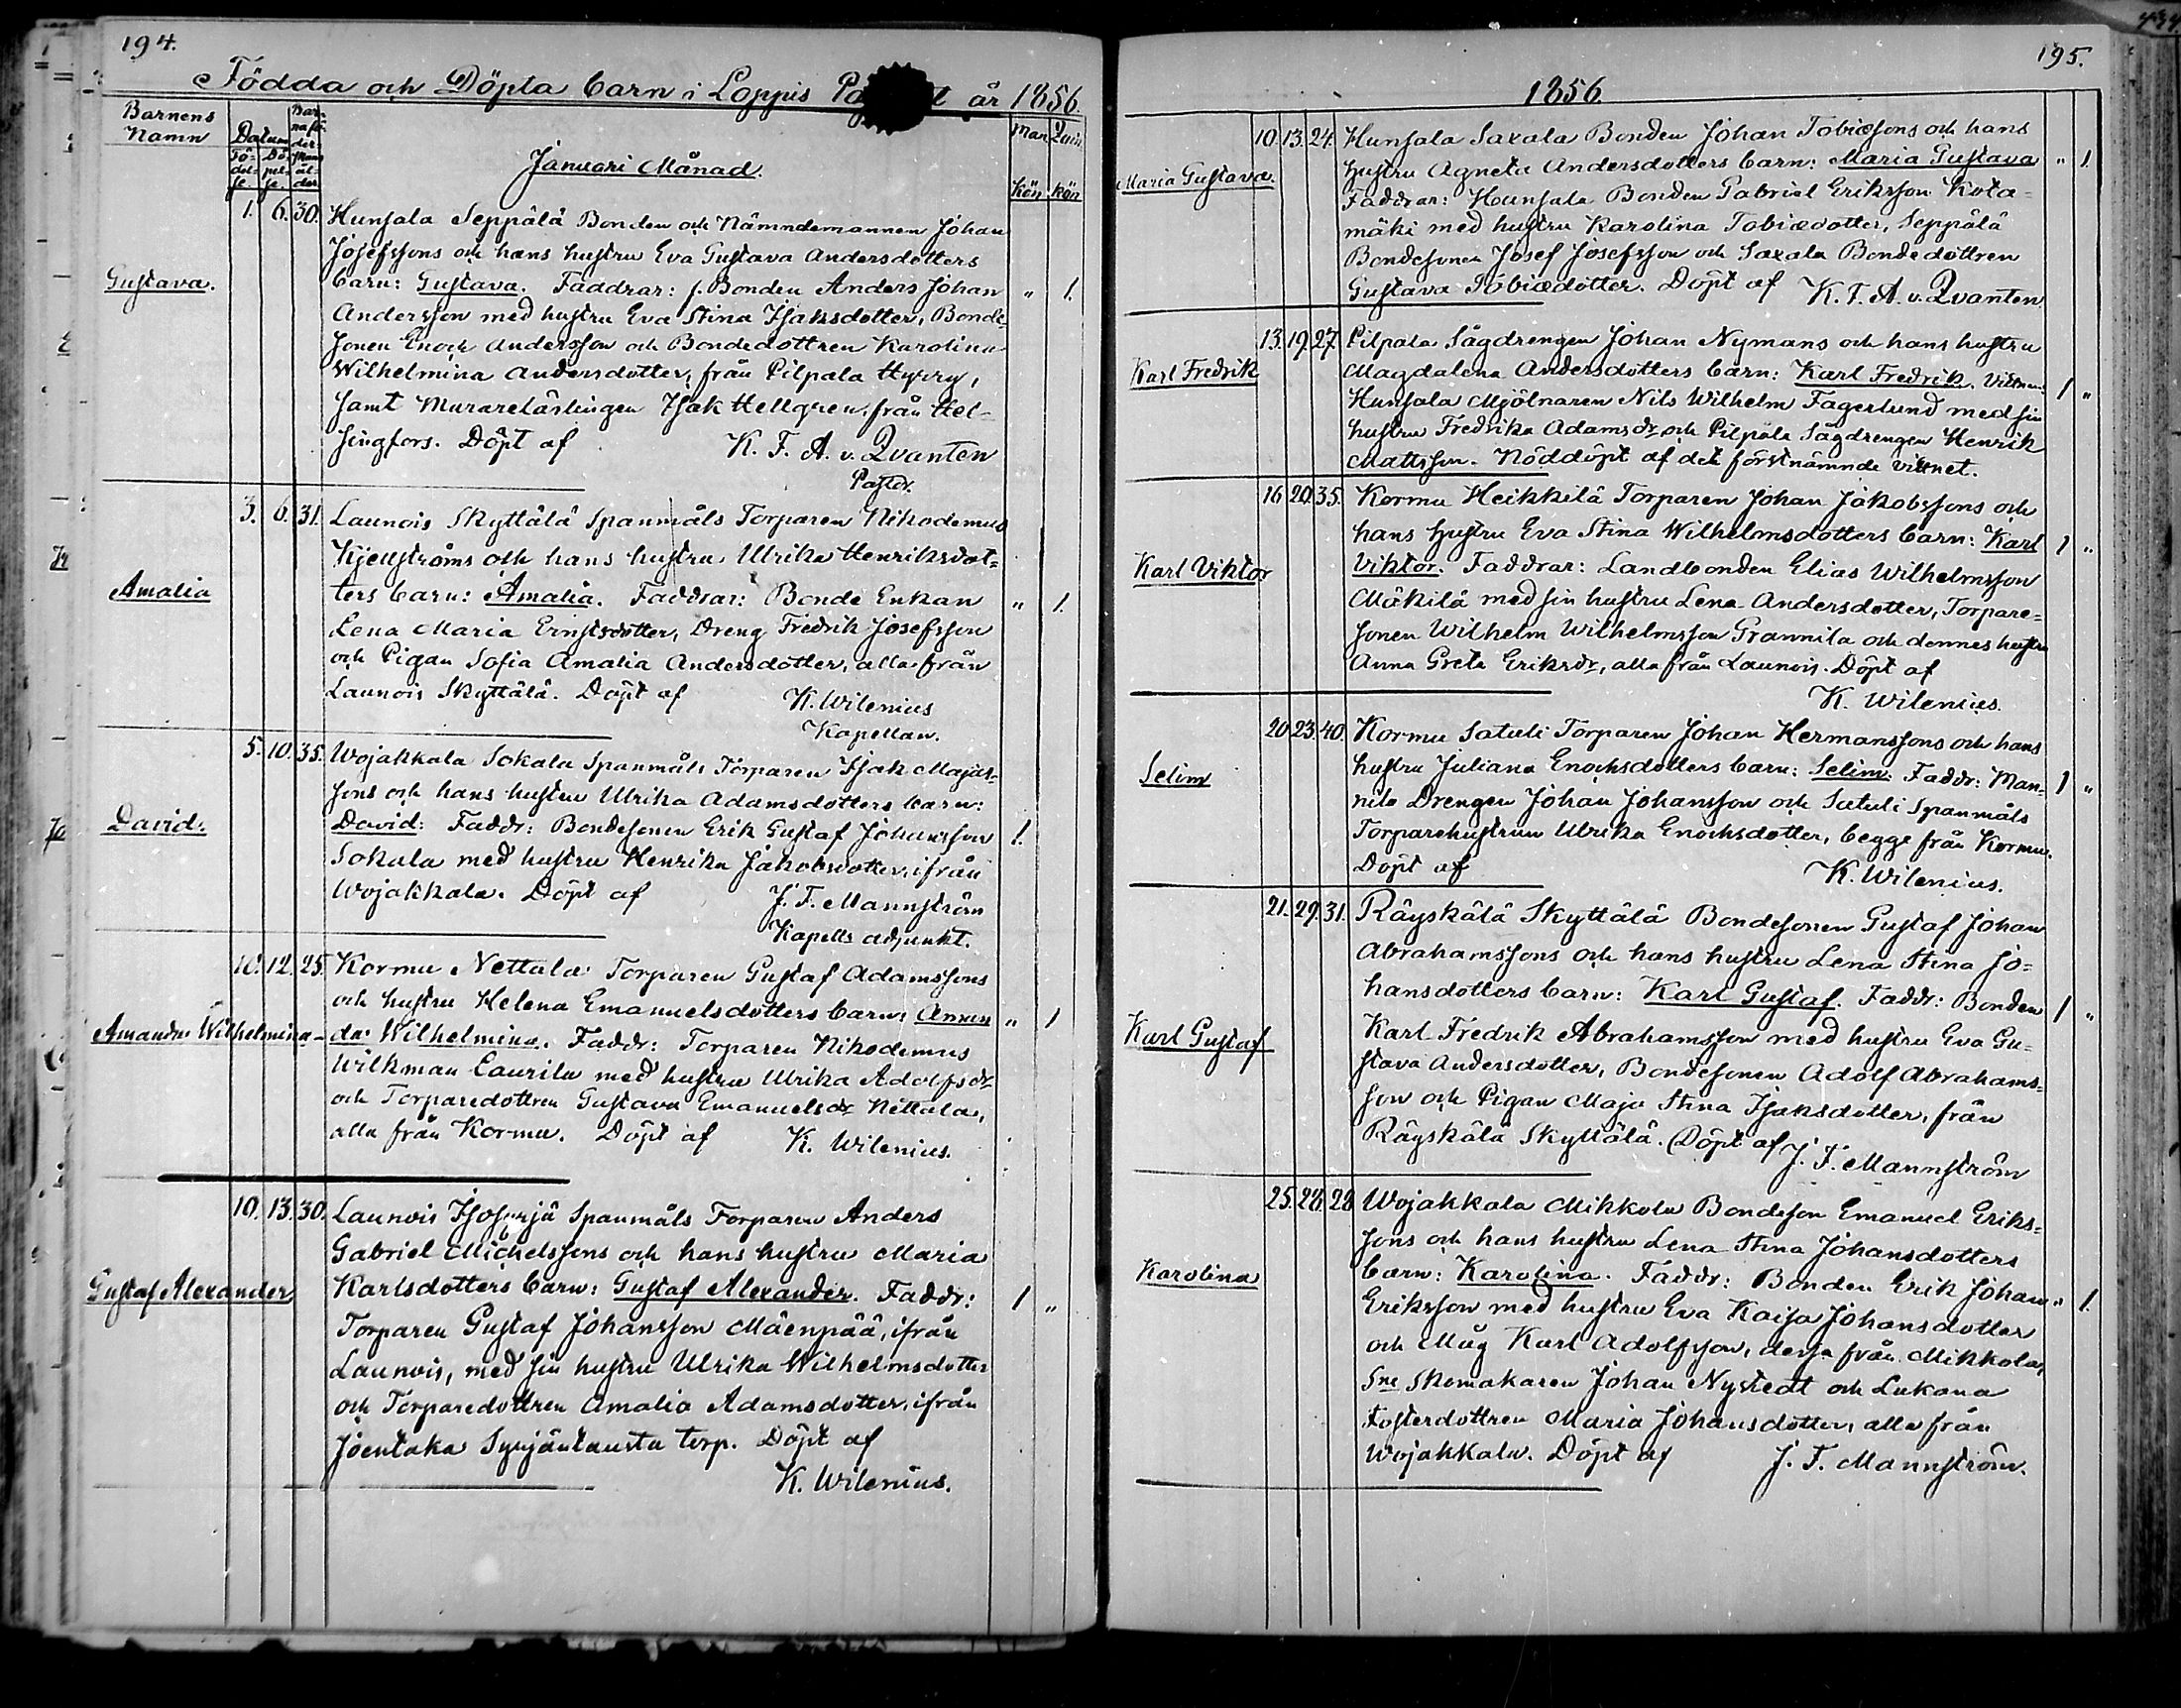 194.
Födda och Döpta barn i Loppis år 1856.
Barnens Namn
Datum
Bar-
nafö-
der-
skans
ål-
der
Fö-
del-
se.
Dö-
pel-
se.
Man
kön
Quin
kön
Januari Månad.
Gustava.
1. 6. 30. Hunsala Seppälä Bonden och Nämndemannen Johan
Josefssons och hans hustru Eva Gustava Andersdotters
barn: Gustava. Faddrar: f. Bonden Anders Johan " 1.
Andersson med hustru Eva Stina Isaksdotter, Bonde-
sonen Enoch Andersson och Bondedottren Karolina
Wilhelmina Andersdotter, från Pilpala Hyrry,
samt Murarelärlingen Isak Hellgren, från Hel-
singfors. Döpt af K. F. A. v. Qvanten
Pastor.
Amalia
3. 6. 31. Launois Skyttälä Spanmåls Torparen Nikodemus
Kjellströms och hans hustru Ulrika Henriksdot-
ters barn: Amalia. Faddrar: Bonde Enkan " 1.
Lena Maria Ernstsdotter, Dreng Fredrik Josefsson
och Pigan Sofia Amalia Andersdotter, alla från
Launois Skyttälä. Döpt af K. Wilenius
Kapellan.
David.
5. 10. 35. Wojakkala Sokala Spanmåls Torparen Isak Majas-
sons och hans hustru Ulrika Adamsdotters barn:
David: Faddr: Bondesonen Erik Gustaf Johansson 1.
Sokala med hustru Henrika Jakobsdotter, ifrån
Wojakkala. Döpt af J. F. Mannström
Kapells adjunkt.
Amanda Wilhelmina
10. 12. 25. Kormu Nettala Torparen Gustaf Adamssons
och hustru Helena Emanuelsdotters barn: Aman " 1
da Wilhelmina. Faddr: Torparen Nikodemus
Wilkman Laurila med hustru Ulrika Adolfsdr
och Torparedottren Gustava Emanuelsdr Nettala,
alla från Kormu. Döpt af K. Wilenius.
Gustaf Alexander
10. 13. 30. Launois Spanmåls Torparen Anders
Gabriel Michelssons och hans hustru Maria
Karlsdotters barn: Gustaf Alexander. Faddr: 1 "
Torparen Gustaf Johansson Mäenpää, ifrån
Launois, med sin hustru Ulrika Wilhelmsdotter
och Torparedottren Amalia Adamsdotter, ifrån
Joentaka Syrjäntausta torp. Döpt af
K. Wilenius.
195.
1856.
Maria Gustava.
10. 13. 24. Hunsala Saxala Bonden Johan Tobiæsons och hans
hustru Agneta Andersdotters barn: Maria Gustava " 1.
Faddrar: Hunsala Bonden Gabriel Eriksson Kota-
mäki med hustru Karolina Tobiædotter, Seppälä
Bondesonen Josef Josefsson och Saxala Bondedottren
Gustava Tobiædotter. Döpt af K. F. A. v. Qvanten
Karl Fredrik
13. 19. 27. Pilpala Sågdrengen Johan Nymans och hans hustru
Magdalena Andersdotters barn: Karl Fredrik. Vittnen: 1 "
Hunsala Mjölnaren Nils Wilhelm Fagerlund med sin
hustru Fredrika Adamsdr och Pilpala Sågdrengen Henrik
Mattsson. Nöddöpt af det förstnämnde vittnet.
Karl Viktor
16 20. 35. Kormu Heikkilä Torparen Johan Jakobssons och
hans hustru Eva Stina Wilhelmsdotters barn: Karl 1 "
Viktor. Faddrar: Landbonden Elias Wilhelmsson
Mäkilä med sin hustru Lena Andersdotter, Torpare-
sonen Wilhelm Wilhelmsson Grannila och dennes hustru
Anna Greta Eriksdr, alla från Launois. Döpt af
K. Wilenius.
Selim
20 23. 40. Kormu Satuli Torparen Johan Hermanssons och hans
hustru Juliana Enochsdotters barn: Selim: Faddr: Man- 1 "
nila Drengen Johan Johansson och Satuli Spanmåls
Torparehustrun Ulrika Enochsdotter, begge från Kormu.
Döpt af K. Wilenius.
Karl Gustaf
21. 29. 31. Räyskälä Skyttälä Bondesonen Gustaf Johan
Abrahamssons och hans hustru Lena Stina Jo-
hansdotters barn: Karl Gustaf. Faddr: Bonden 1 "
Karl Fredrik Abrahamsson med hustru Eva Gu-
stava Andersdotter, Bondesonen Adolf Abrahams-
son och Pigan Maja Stina Isaksdotter, från
Räyskälä Skyttälä. Döpt af J. F. Mannström
Karolina
25. 28. 28 Wojakkala Mikkola Bondeson Emanuel Eriks-
sons och hans hustru Lena Stina Johansdotters
barn: Karolina. Faddr: Bonden Erik Johan " 1.
Eriksson med hustru Eva Kaisa Johansdotter
och Måg Karl Adolfsson, dessa från Mikkola,
Sne Skomakaren Johan Nystedt och Lukana
Fosterdottren Maria Johansdotter, alla från
Wojakkala. Döpt af J. F. Mannström.